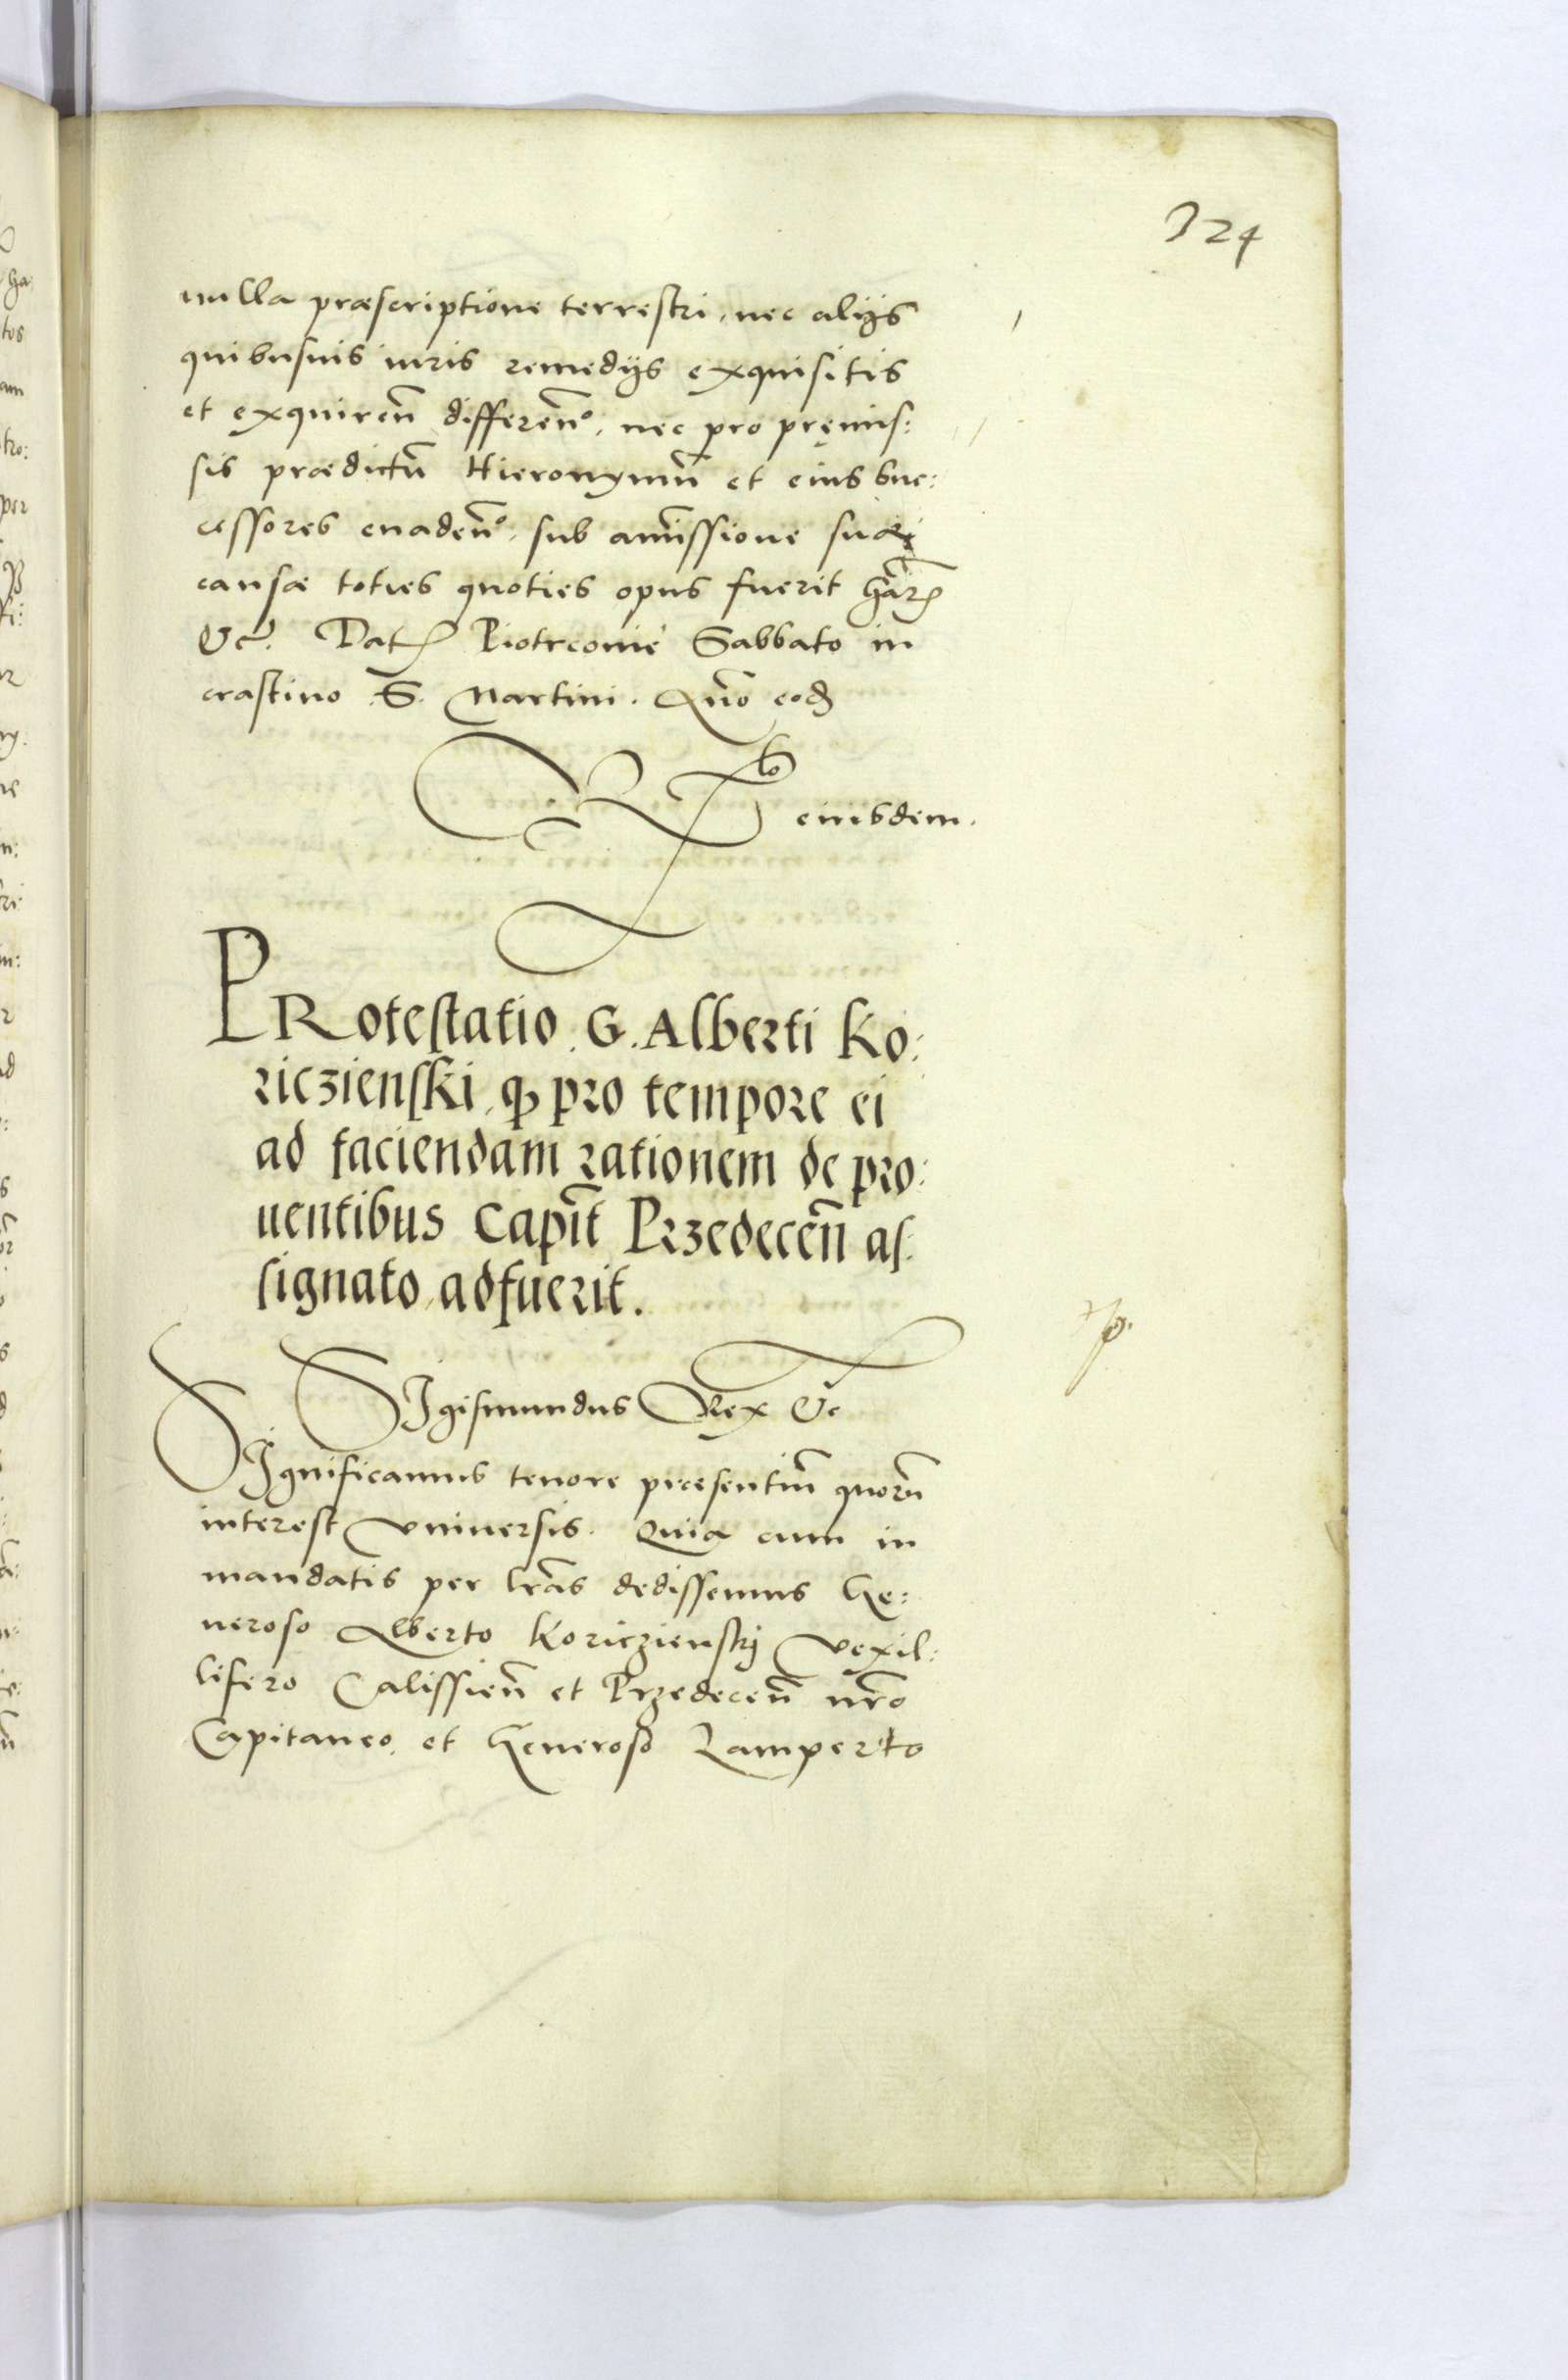 324
nulla præscriptione terrestri, nec alijs
quibusuis iuris remedijs exquisitis
et exquireñ differeñ°, nec pro pręmis:
sis prædictũ Hieronymũ et eius suc:
cessores euadeñ°, sub amissione suæ
causæ toties quoties opus fuerit har̃
&c. Dat Piotrconiẽ Sabbato in
crastino S. Martini. Anno eod
eiusdem.
PRotestatio G. Alberti Ko:
riczienski, qp pro tempore ei
ad faciendam rationem de pro:
uentibus Capit̃ Przedeceñ as:
signato, adfuerit.
SIgismundus Rex &c
SIgnificamus tenore præsentiũ quorũ
interest vniuersis. Quia cum in
mandatis per lr̃as dedissemus Ge:
neroso Alberto Koriczienskj vexil:
lifero Calissieñ et Przedeceñ nr̃o
Capitaneo, et Generoso Lamperto